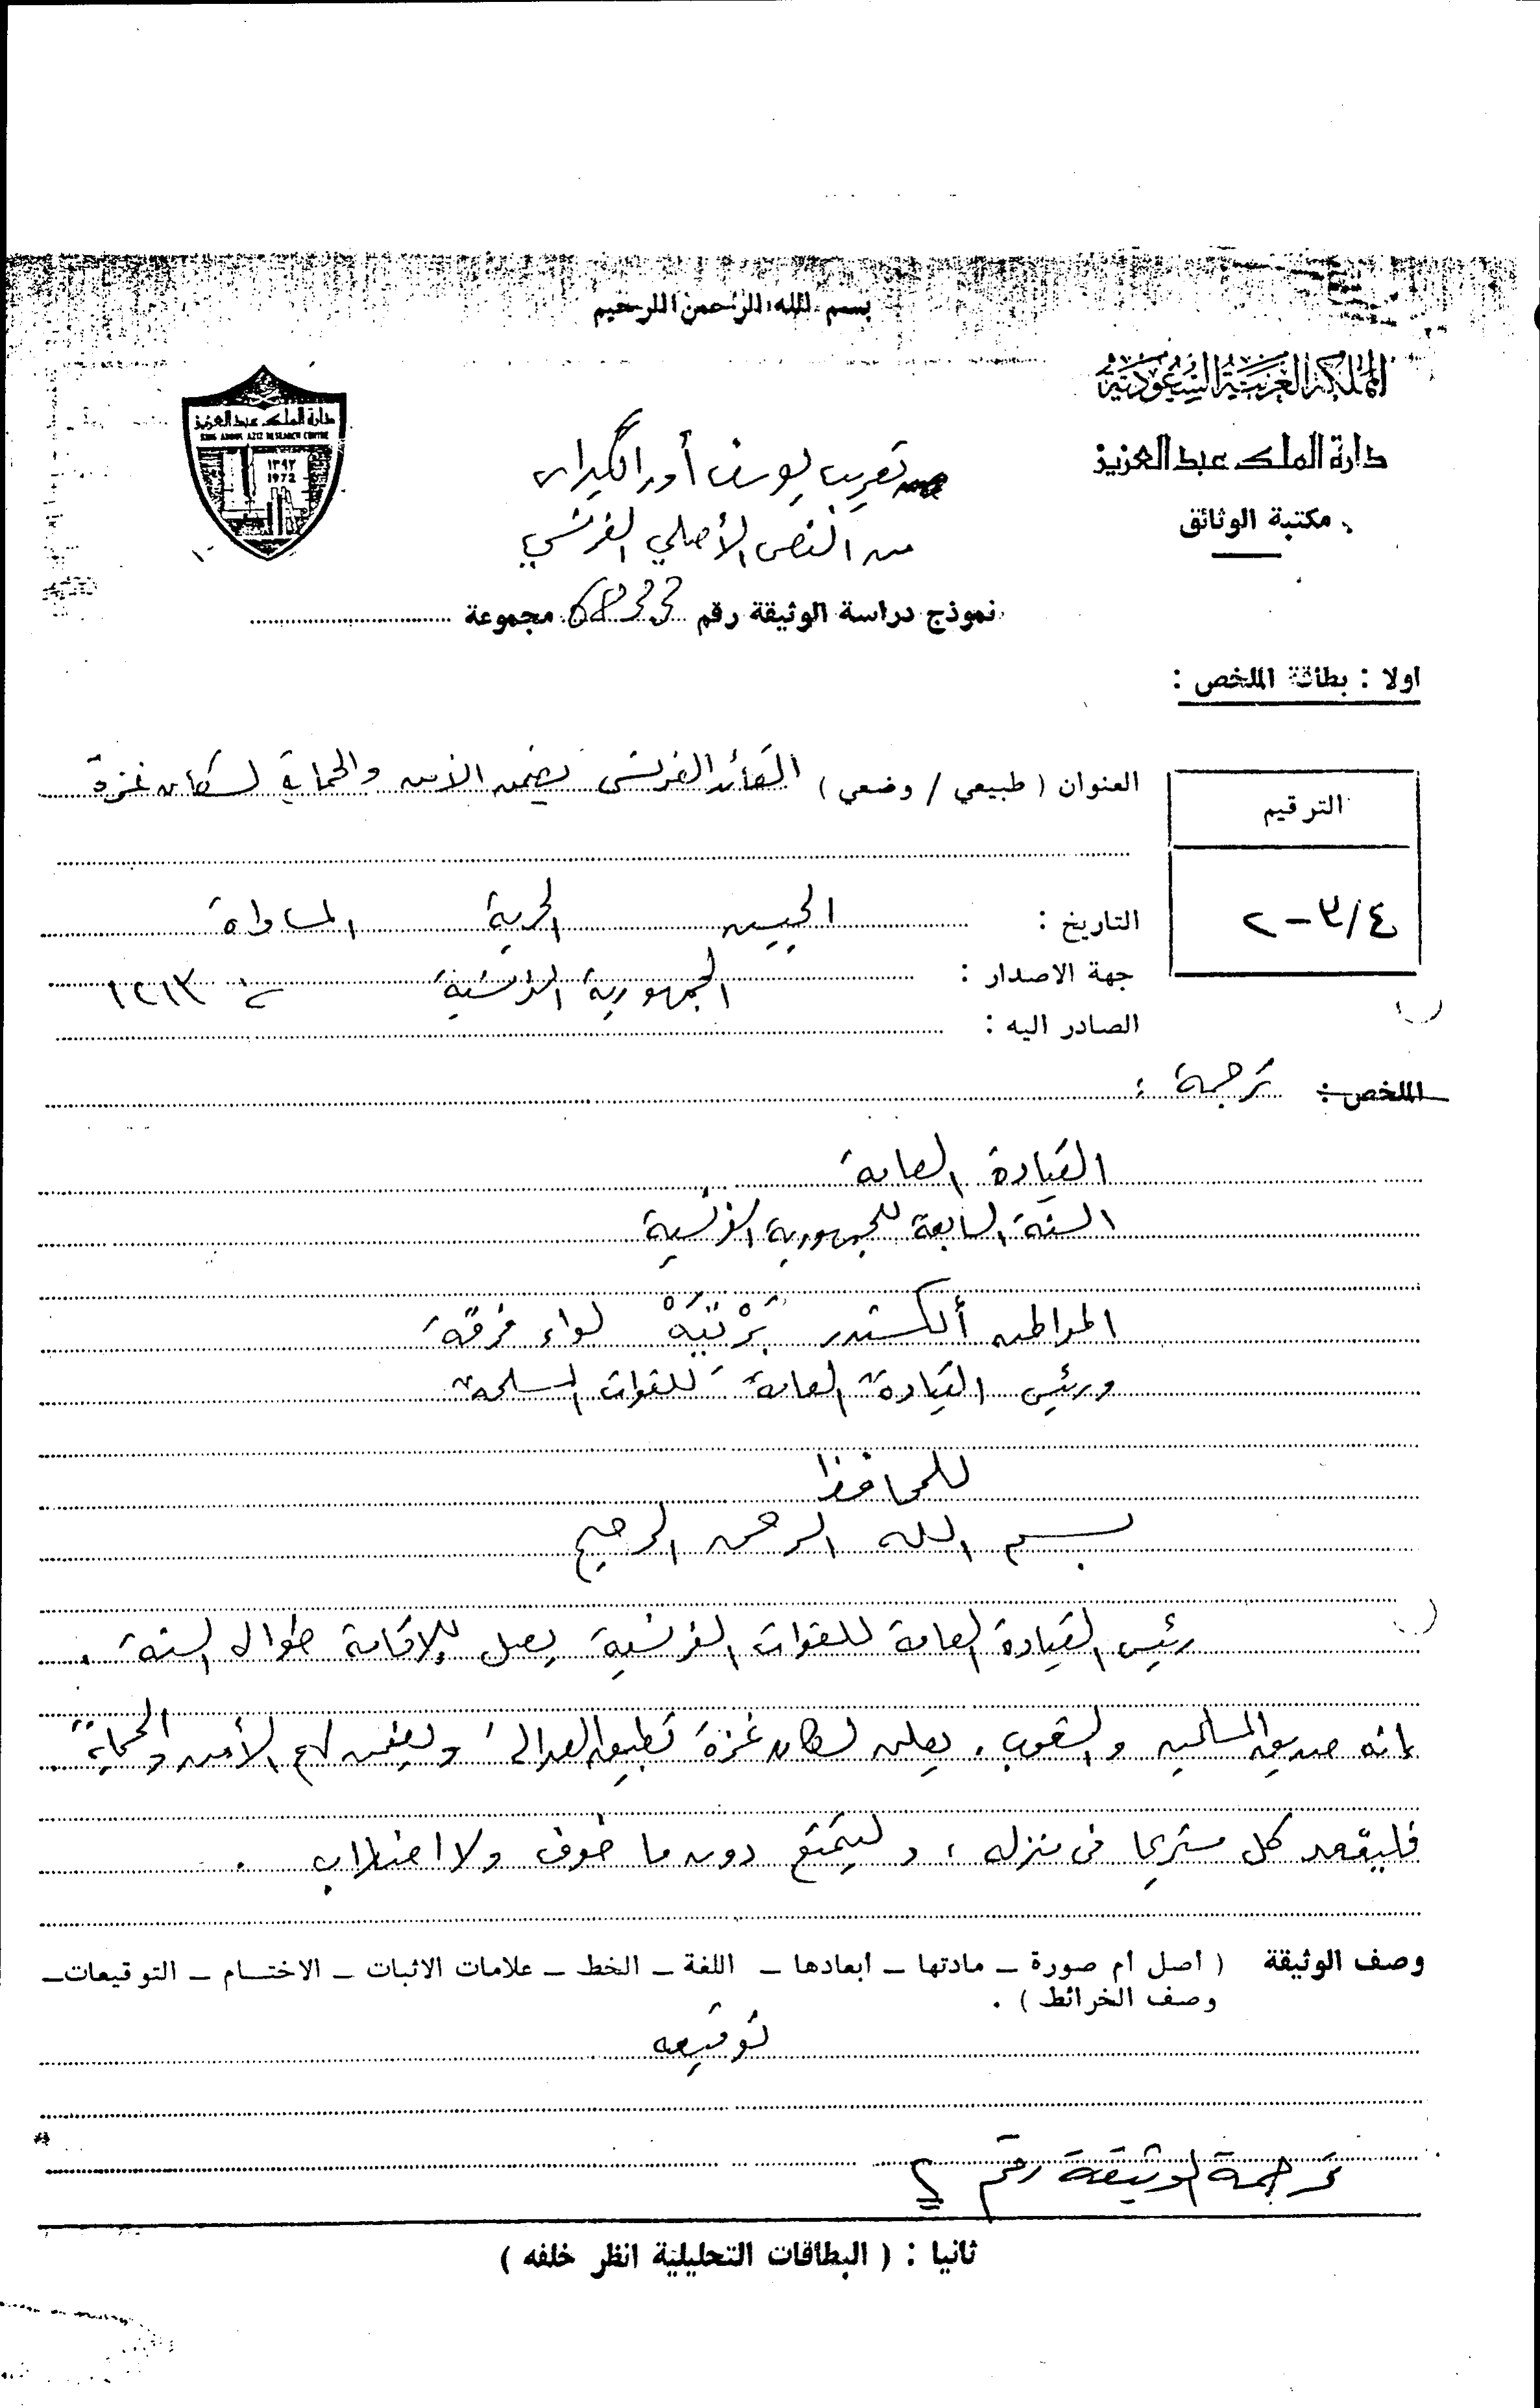 بسم الله الرحمن الرحيم
المملكة العربية السعودية
دارة الملك عبد العزيز
مكتبة الوثائق
دارة الملك عبد العزيز
KING ABDUL AZIZ RESEARCH CENTRE
١٣٩٢
1972
تعريب يوسف
من النص الأصلي الفرنسي
نموذج دراسة الوثيقة رقم مجموعة
اولا : بطاقة الملخص :
الترقيم
٣/٤ - ٢
العنوان ( طبيعي / وضعي ) القائد الفرنسى يضمن الأمن والحماية لسكان غزة
التاريخ : الجيش الحرية المساواة
جهة الاصدار : الجمهورية الفرنسية سنة ١٢١٣
الصادر اليه :
الملخص : ترجمة :
القيادة العامة
السنة السابعة للجمهورية الفرنسية
المواطن ألكسندر بَرْتَيَهْ لواء فرقة
ورئيس القيادة العامة للقوات المسلحة
للمحافظ
بسم الله الرحمن الرحيم
رئيس القيادة العامة للقوات الفرنسية يصل للإقامة طوال السنة .
إنه صديق المسلمين والشعوب . يعلن لسكان غزة تطبيق العدالة ويضمن لهم الأمن والحماية
فليقعد كل مستريحا فى منزله ، وليتمتع دون ما خوف ولا اضطراب .
وصف الوثيقة ( أصل أم صورة – مادتها – ابعادها – اللغة – الخط – علامات الاثبات – الاختام – التوقيعات –
وصف الخرائط ) .
توقيعه
ترجمة لوثيقة رقم ٢
ثانيا : ( البطاقات التحليلية انظر خلفه )